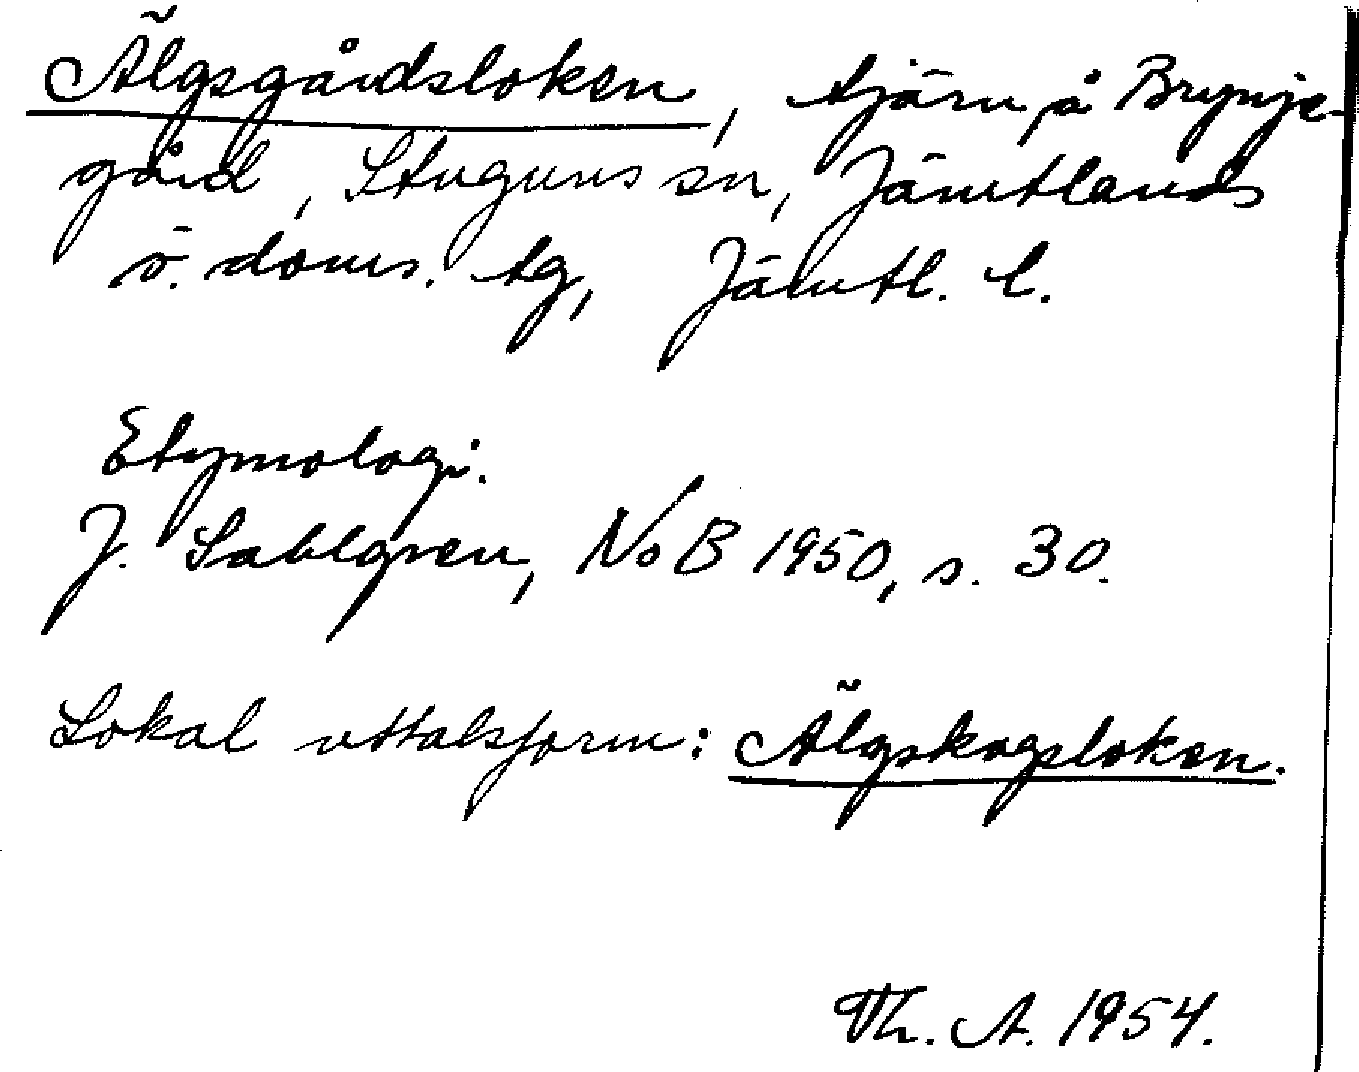 Älgsgårdsloken, tjärn å Brynje-
gård, Stuguns sn, Jämtlands
ö. doms. tg, Jämtl. l.
Etymologi.
J. Sahlgren, NoB 1950, s. 30.
Lokal uttalsform: Älgskogsloken.
Th. A. 1954.